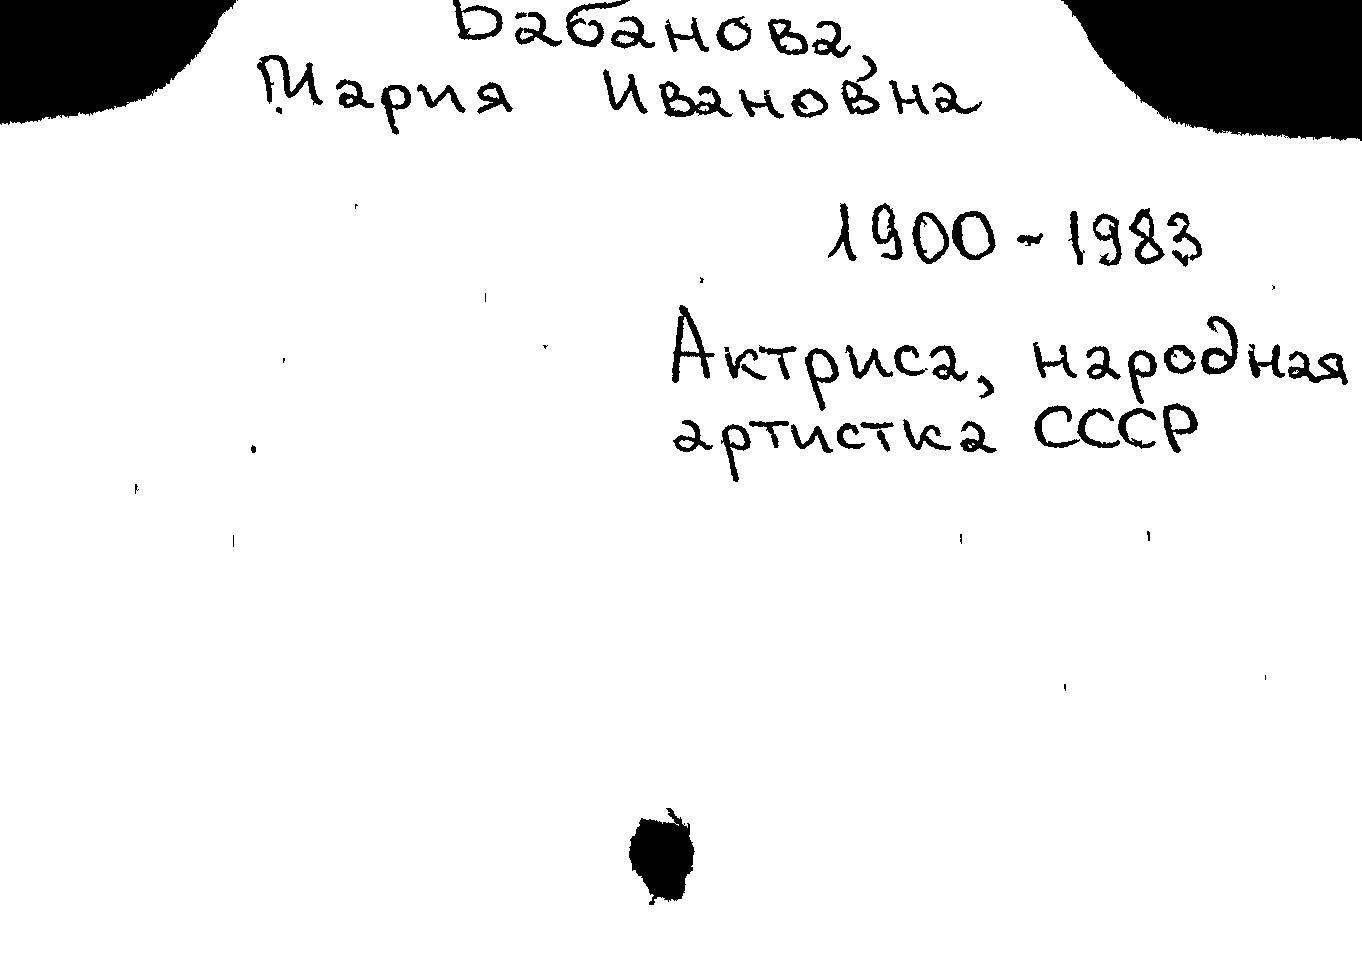 Бабанова,
Мария Ивановна
1900-1983
Актриса, народная
артистка СССР